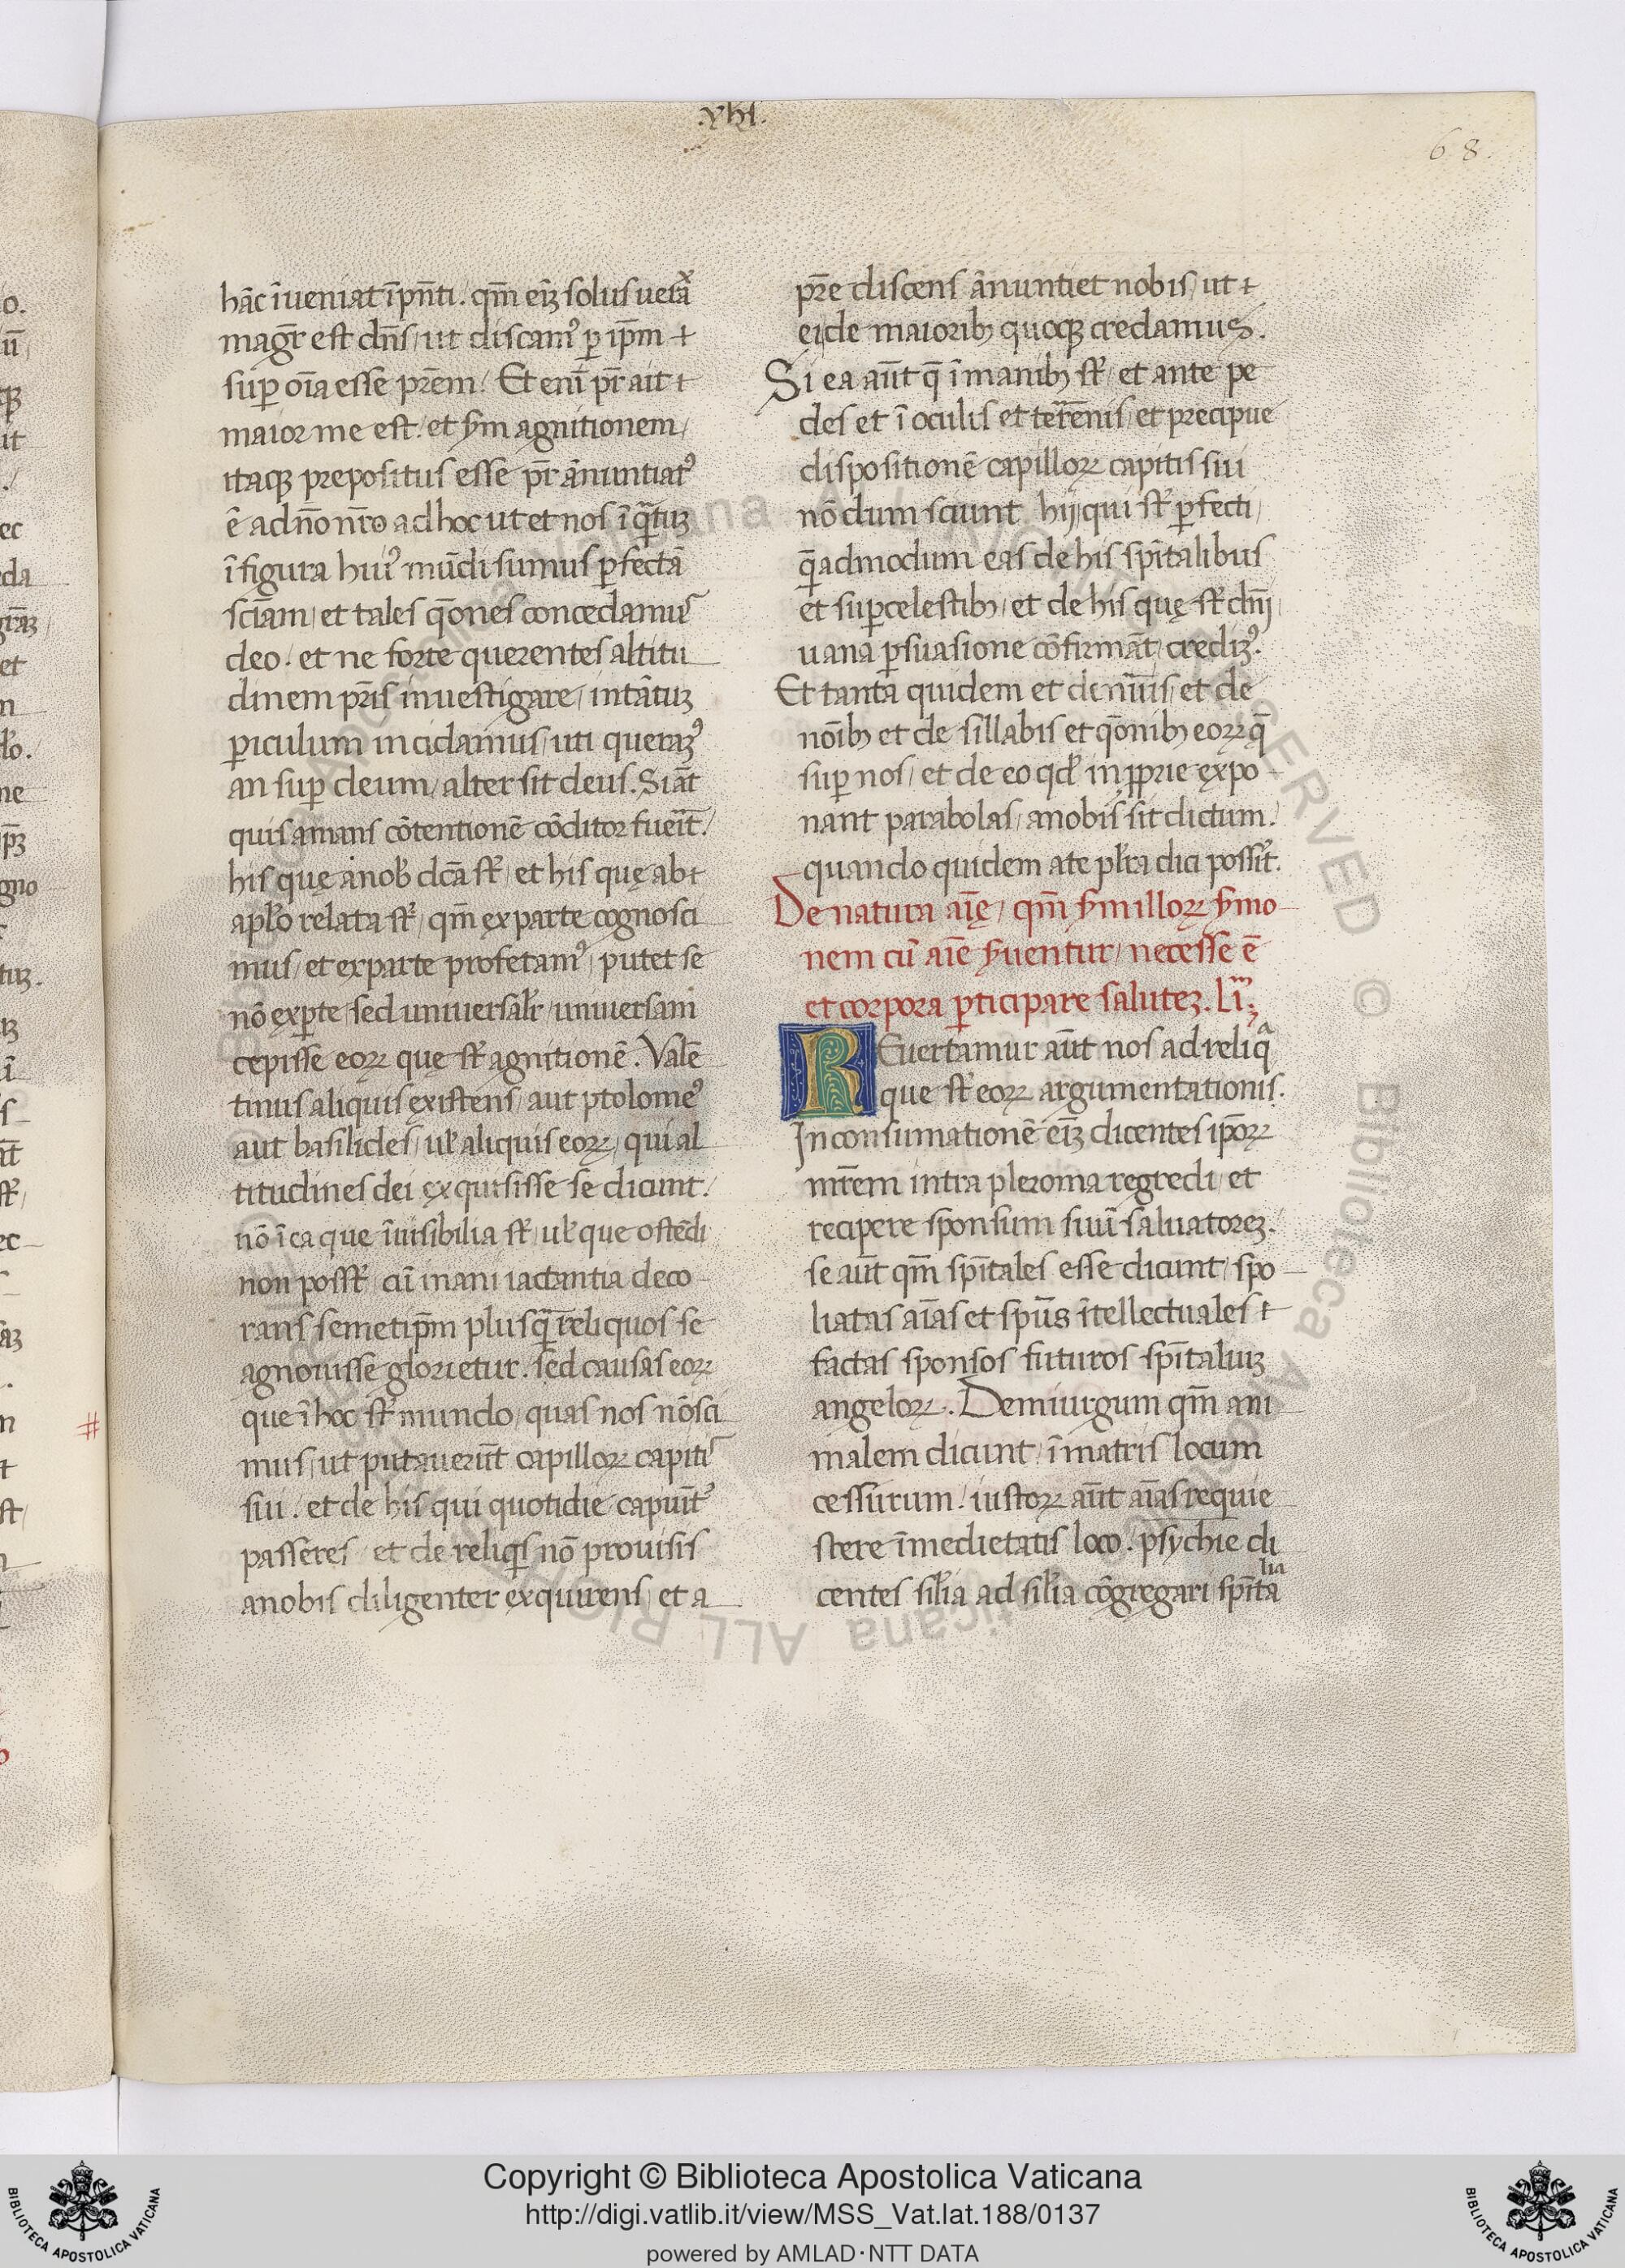 .xhi.
68.
hāc īueniat ī pn̄ti. qm̄ eīꝫ solus uerax
magr̄ est dn̄s, ut discamꝰ ꝑ ip̄m ⁊
suꝑ oīa esse prēm. Et eni pr̄ ait ⁊
maior me est. et ẜm agnitionem,
itaqꝫ prepositus esse pr̄ ānuntiatꝰ
ē a dn̄o nr̄o ad hoc ut et nos ī qᷓtuꝫ
ī figura huiꝰ mūdi sumus ꝑfectā
sciām, et tales qōnes concedamus
deo. et ne forte querentes altitu
dinem pr̄is inuestigare, intātuꝫ
ꝑiculum incidamus, uti querāꝰ
an suꝑ deum, alter sit deus. Si aūt
quis amans cōtentionē cōditor fuerit.
his quę a nob̄ dcā st̄, et his quę ab ⁊
apl̄o relata st̄, qm̄ ex parte cognosci
mus, et ex parte profetamꝰ, putet se
nō exꝑte sed uniuersalr̄ uniuersam
cepisse eoꝝ quę st̄ agnitionē. Valē
tinus aliquis existens, aut ptolomeꝰ
aut basilides, ul̄ aliquis eoꝝ, qui al
titudines dei exquisisse se dicunt.
nō ī ea que īuisibilia st̄, ul̄ que ostēdi
non posst̄, cū inani iactantia deco
rans semetip̄m plusqᷓ reliquos se
agnouisse glorietur. sed causas eoꝝ
que ī hoc st̄ mundo, quas nos nō sci
mus, ut putauerūt capilloꝝ capitis
sui. et de his qui quotidie capiūtꝰ
passeres, et de reliqis nō prouisis
a nobis diligenter exquirens, et a
pr̄e discens ānuntiet nobis, ut ⁊
ei de maioribꝫ quoqꝫ credamus.
Si ea aūt q̄ ī manibꝫ st̄, et ante pe
des et ī oculis et terrenis, et precipue
dispositionē capilloꝝ capitis sui
nō dum sciunt hij qui st̄ ꝑfecti,
qᷓadmodum eas de his spītalibus
et suꝑcelestibꝫ, et de his quę st̄ dnī
uana ꝑsuasione cōfirmāt, credimꝰ.
Et tanta quidem et de nūis, et de
noībꝫ et de sillabis et qōnibꝫ eoꝝ q̄
suꝑ nos, et de eo qd̄ inꝓprie expo
nant parabolas, a nobis sit dictum.
quando quidem a te pl̄ra dici possūt.
De natura aīę, qm̄ ẜm illoꝝ ẜmo
nem cū aīe ẜuentur, necesse ē
et corpora ꝑticipare saluteꝫ. Li;
REuertamur aūt nos ad reliqᷓ
que st̄ eoꝝ argumentationis.
In consumationē eīꝫ dicentes ip̄oꝝ
mr̄em intra pleroma regredi, et
recipere sponsum suū saluatoreꝫ.
se aūt qm̄ spītales esse dicunt, spo
liatas aīas et spūs ītellectuales ⁊
factas sponsos futuros spītaliuꝫ
angeloꝝ. Demiurgum qm̄ ani
malem dicunt, ī matris locum
cessurum. iustoꝝ aūt aīas requie
scere ī medietatis loco. psychie di
centes sil̄ia ad sil̄ia cōgregari spīta
lia
Copyright © Biblioteca Apostolica Vaticana
http://digi.vatlib.it/view/MSS_Vat.lat.188/0137
powered by AMLAD·NTT DATA